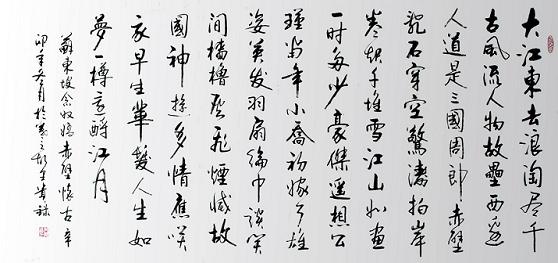 大江東去浪淘盡千
古風流人物故壘西邊
人道是三國周郎赤壁
亂石穿空驚濤拍岸
卷起千堆雪江山如畫
一時多少豪傑遙想公
瑾當年小喬初嫁了雄
姿英發羽扇綸巾談笑
間檣櫓灰飛煙滅故
國神遊多情應笑
我早生華髮人生如
夢一樽還酹江月
蘇東坡念奴嬌赤壁懷古辛
卯年冬月於